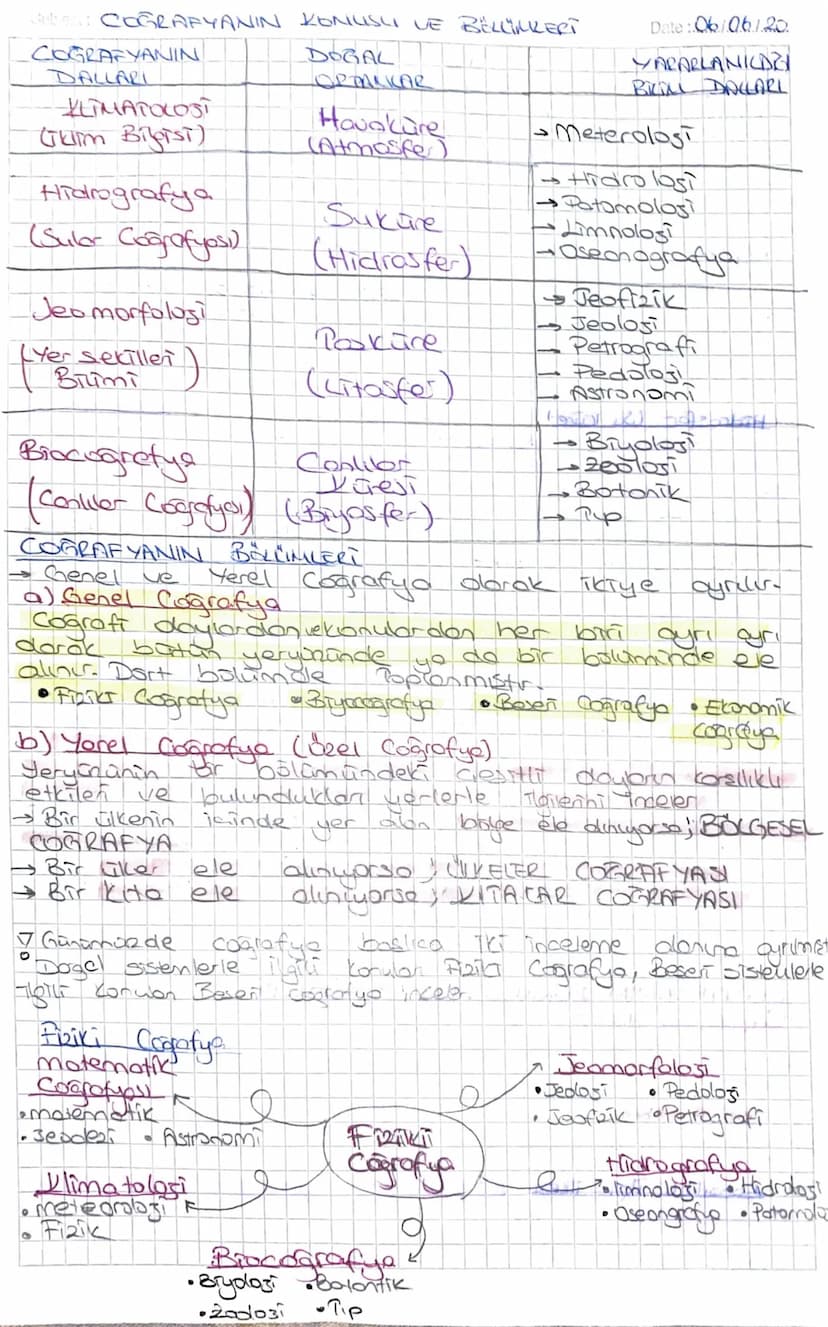 COĞRAFYANIN KONUSU VE BÖLÜMLERİ Date: 06/06/20
COĞRAFYANIN DALLARI
DOĞAL ORTAMLAR
YARARLANILDIĞI BİLİM DALLARI
KLİMATOLOJİ
(İklim Bilgisi)
Havaküre
(Atmosfer)
→ Meteroloji
Hidrografya
(Sular Coğrafyası)
Suküre
(Hidrosfer)
→ Hidroloji
→ Potomoloji
→ Limnoloji
→ Oseonografya
Jeomorfoloji
(Yer Şekilleri Bilimi)
Taşküre
(Litosfer)
→ Jeofizik
→ Jeoloji
→ Petrografi
→ Pedoloji
→ Astronomi
Biocoğrafya
(Canlılar Coğrafyası)
Canlılar Küresi
(Biyosfer)
→ Biyoloji
→ Zooloji
→ Botonik
→ Tıp
COĞRAFYANIN BÖLÜMLERİ
→ Genel ve Yerel Coğrafya olarak ikiye ayrılır.
a) Genel Coğrafya
Coğrafi olaylardan ve konulardan her biri ayrı ayrı
olarak bütün yeryüzünde ya da bir bölümünde ele
alınır. Dört bölümde toplanmıştır.
• Fiziki Coğrafya • Biyocoğrafya • Beşeri Coğrafya • Ekonomik
Coğrafya
b) Yerel Coğrafya (Özel Coğrafya)
Yeryüzünün bir bölümündeki çeşitli olayların karşılıklı
etkileri ve bulundukları yerlerle ilgilerini inceler
→ Bir ülkenin içinde yer alan bölge ele alınıyorsa; BÖLGESEL
COĞRAFYA
→ Bir ülke ele alınıyorsa; ÜLKELER COĞRAFYASI
→ Bir Kıta ele alınıyorsa; KITALAR COĞRAFYASI
▽ Günümüzde coğrafya başlıca iki inceleme alanına ayrılmış
° Doğal sistemlerle ilgili konuları Fiziki Coğrafya, Beşeri sistemlerle
ilgili konuları Beşeri coğrafya inceler.
Fiziki Coğrafya
Matematik
Coğrafyası
• matematik
• Jeodezi • Astronomi
Jeomorfoloji
• Jeoloji • Pedoloji
• Jeofizik • Petrografi
Fiziki
Coğrafya
Klimatoloji
• meteoroloji
• Fizik
Hidrografya
• limnoloji • Hidroloji
• Oseongrafya • Potomolo
Biocoğrafya
• Biyoloji • Bolontik
• Zooloji • Tıp